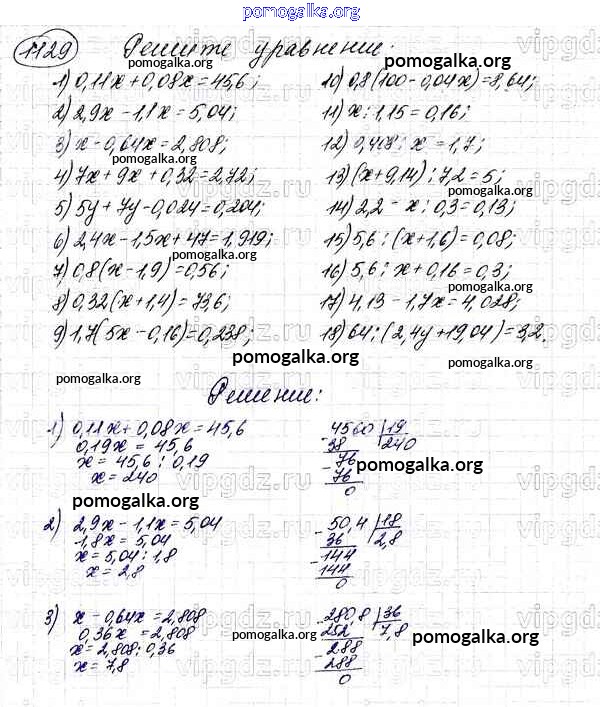 pomogalka.org
1129 Решите уравнение:
1) 0,11x + 0,08x = 45,6;
2) 2,9x - 1,1x = 5,04;
3) x - 0,64x = 2,808;
pomogalka.org
4) 7x + 9x + 0,32 = 2,72;
5) 5y + 7y - 0,024 = 0,204;
pomogalka.org
6) 2,4x - 1,5x + 47 = 1,919;
7) 0,8(x - 1,9) = 0,56;
pomogalka.org
8) 0,32(x + 1,4) = 73,6;
9) 1,7(5x - 0,16) = 0,238;
10) 0,8(100 - 0,04x) = 8,64;
pomogalka.org
11) x : 1,15 = 0,16;
12) 0,408 : x = 1,7;
pomogalka.org
13) (x + 9,14) : 7,2 = 5;
14) 2,2 - x : 0,3 = 0,13;
pomogalka.org
15) 5,6 : (x + 1,6) = 0,08;
16) 5,6 : x + 0,16 = 0,3;
pomogalka.org
17) 4,13 - 1,7x = 4,028;
18) 64 : (2,4y + 19,04) = 3,2.
pomogalka.org
pomogalka.org
pomogalka.org
Решение:
1) 0,11x + 0,08x = 45,6
0,19x = 45,6
x = 45,6 : 0,19
x = 240
4560 | 19
38 240
- 76
76
0
pomogalka.org
pomogalka.org
2) 2,9x - 1,1x = 5,04
1,8x = 5,04
x = 5,04 : 1,8
x = 2,8
- 50,4 | 18
36 2,8
- 144
144
0
pomogalka.org
pomogalka.org
3) x - 0,64x = 2,808
0,36x = 2,808
x = 2,808 : 0,36
x = 7,8
- 280,8 | 36
252 7,8
- 288
288
0
pomogalka.org
pomogalka.org